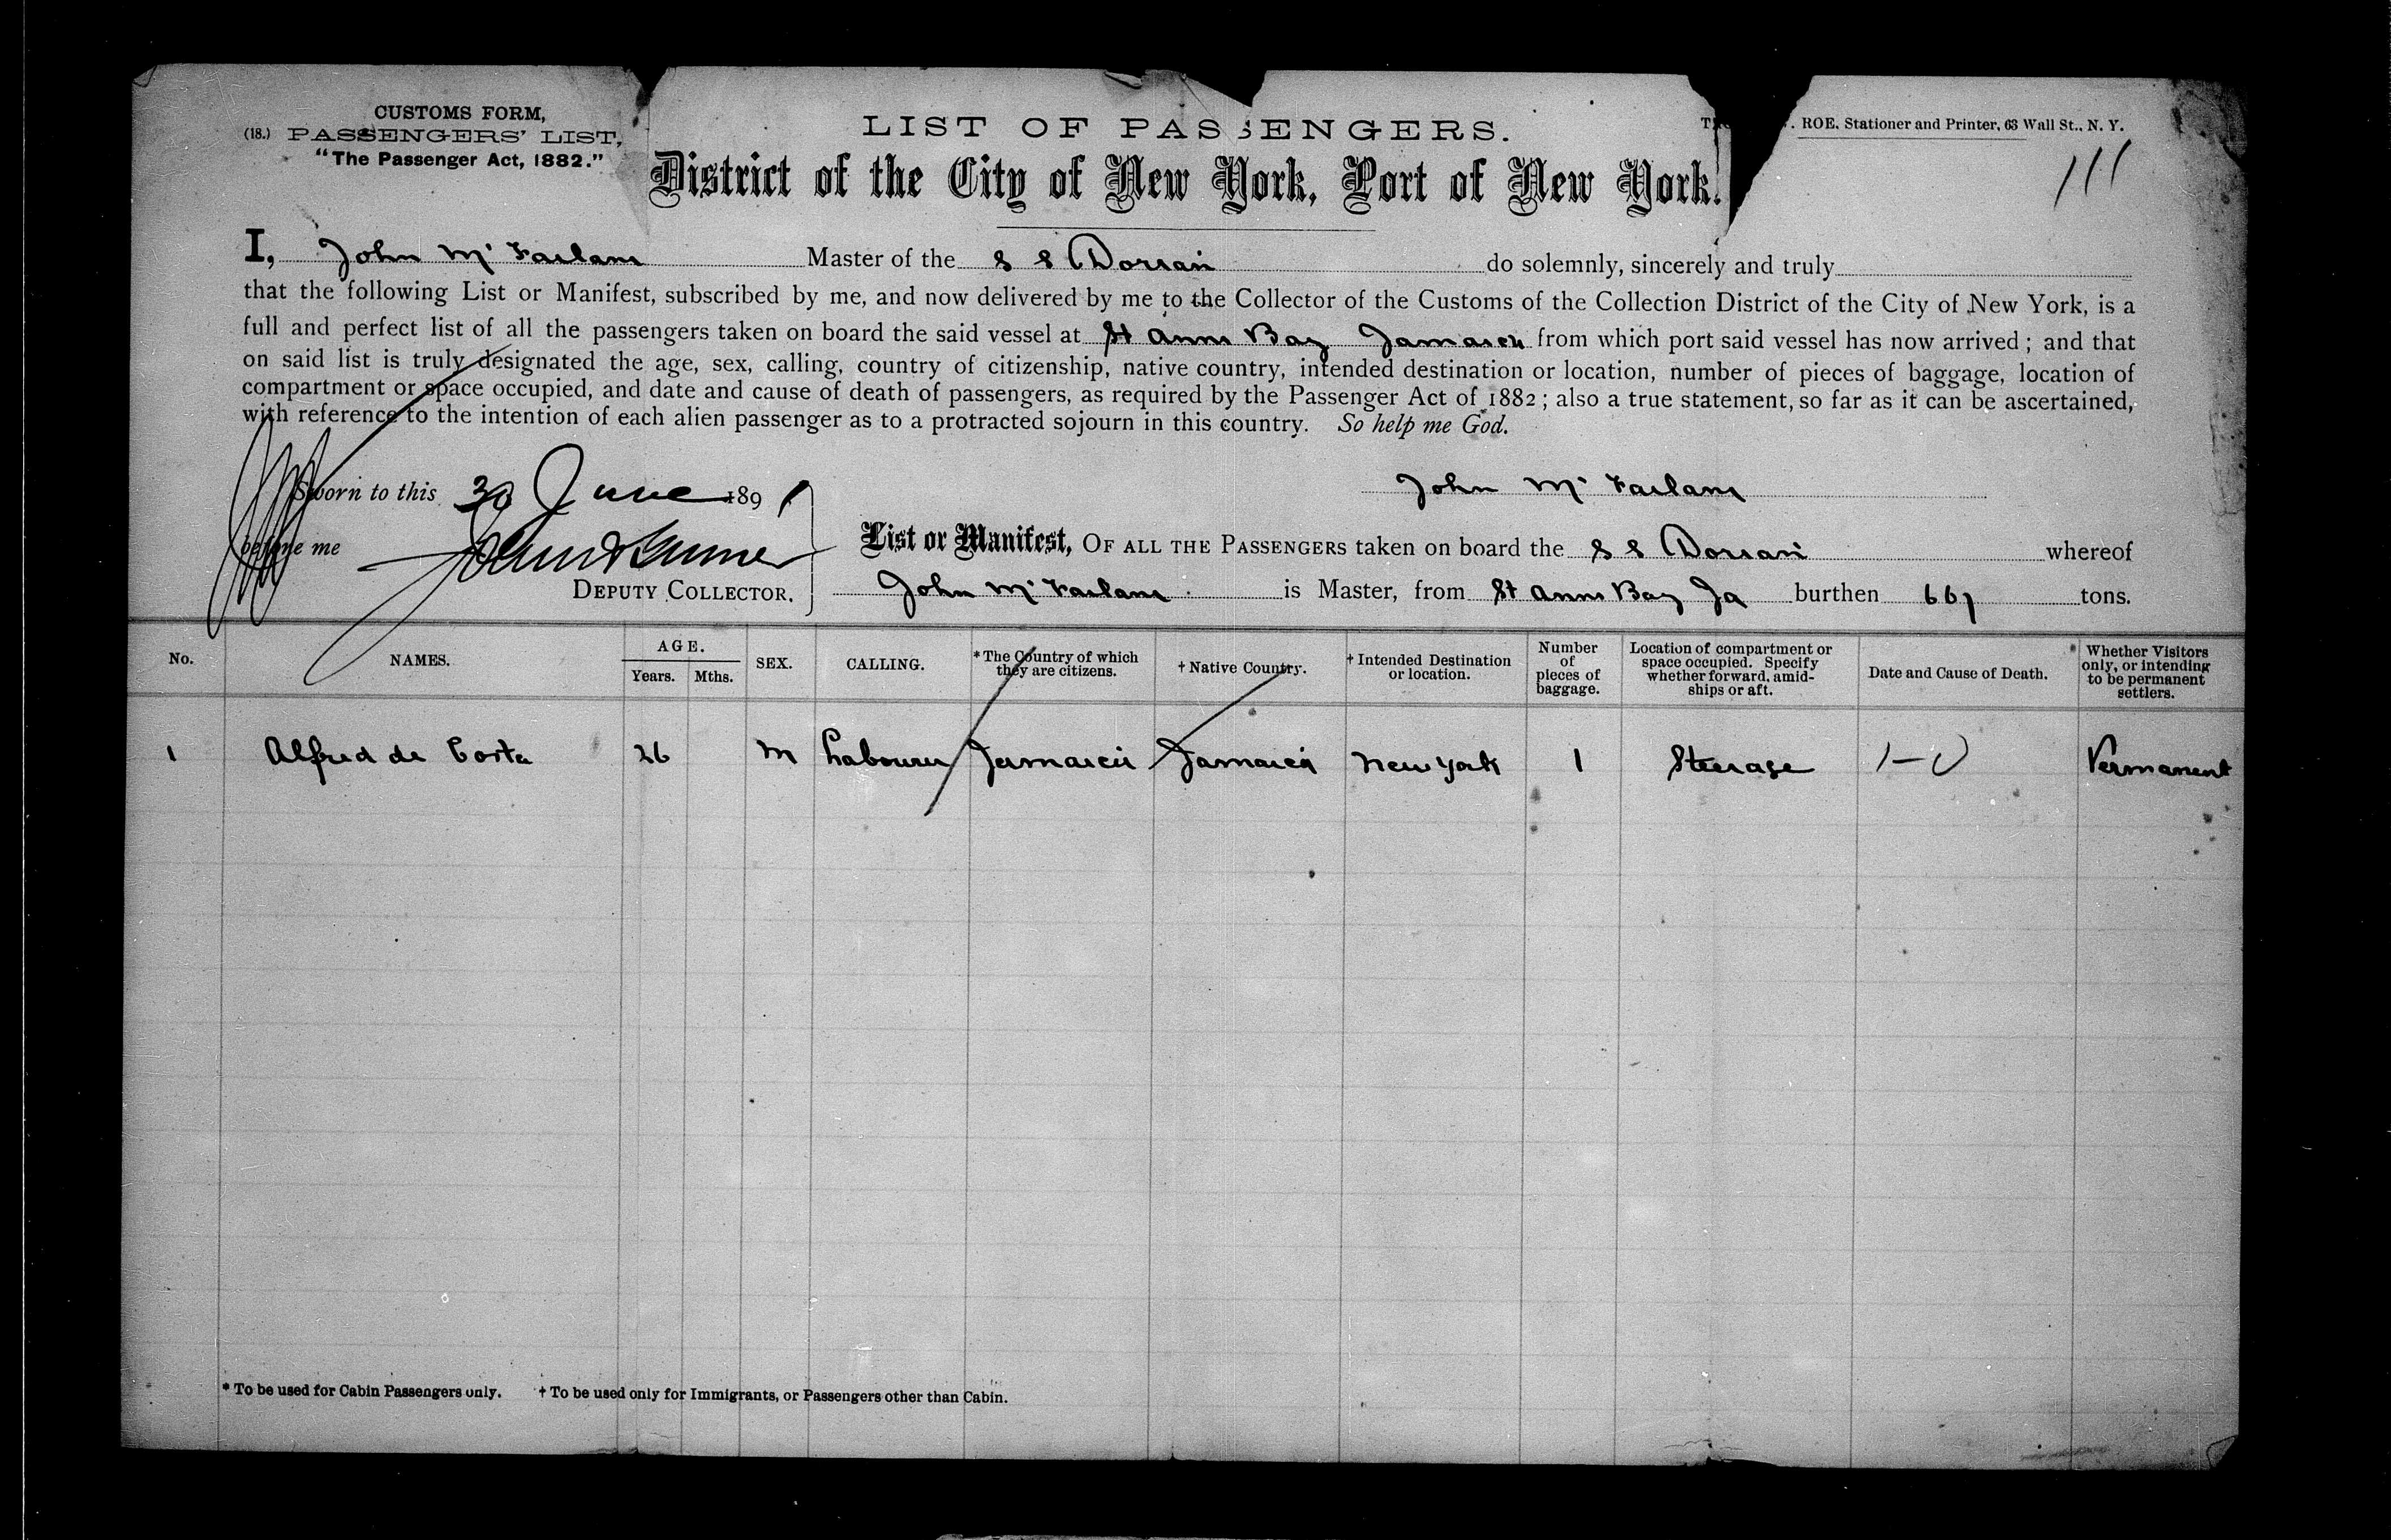 CUSTOMS FORM,
(18.) PASSENGERS' LIST,
"The Passenger Act, 1882."
LIST OF PASSENGERS.
. ROE, Stationer and Printer, 63 Wall St., N. Y.
District of the City of New York, Port of New York.
111
I, John Mc Farlane Master of the S S Dorian do solemnly, sincerely and truly
that the following List or Manifest, subscribed by me, and now delivered by me to the Collector of the Customs of the Collection District of the City of New York, is a
full and perfect list of all the passengers taken on board the said vessel at St Anns Bay Jamaica from which port said vessel has now arrived; and that
on said list is truly designated the age, sex, calling, country of citizenship, native country, intended destination or location, number of pieces of baggage, location of
compartment or space occupied, and date and cause of death of passengers, as required by the Passenger Act of 1882; also a true statement, so far as it can be ascertained,
with reference to the intention of each alien passenger as to a protracted sojourn in this country. So help me God.
Sworn to this 30 June 1891
John Mc Farlane
before me
DEPUTY COLLECTOR.
List or Manifest, OF ALL THE PASSENGERS taken on board the S S Dorian whereof
John Mc Farlane is Master, from St Anns Bay Ja burthen 667 tons.
No. NAMES. AGE. Years. Mths. SEX. CALLING. * The Country of which they are citizens. † Native Country. † Intended Destination or location. Number of pieces of baggage. Location of compartment or space occupied. Specify whether forward, amidships or aft. Date and Cause of Death. Whether Visitors only, or intending to be permanent settlers.
1 Alfred de Costa 26 M Labourer Jamaica Jamaica New York 1 Steerage Permanent
* To be used for Cabin Passengers only. † To be used only for Immigrants, or Passengers other than Cabin.